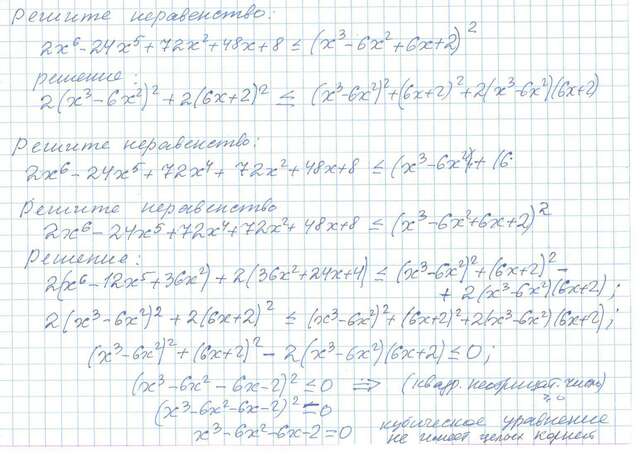 Решите неравенство:
2x⁶-24x⁵+72x²+48x+8 ≤ (x³-6x²+6x+2)²
решение:
2(x³-6x²)²+2(6x+2)² ≤ (x³-6x²)²+(6x+2)²+2(x³-6x²)(6x+2)
Решите неравенство:
2x⁶-24x⁵+72x⁴+72x²+48x+8 ≤ (x³-6x²)+(6
Решите неравенство
2x⁶-24x⁵+72x⁴+72x²+48x+8 ≤ (x³-6x²+6x+2)²
Решение:
2(x⁶-12x⁵+36x²)+2(36x²+24x+4) ≤ (x³-6x²)²+(6x+2)²-
+2(x³-6x²)(6x+2);
2(x³-6x²)²+2(6x+2)² ≤ (x³-6x²)²+(6x+2)²+2(x³-6x²)(6x+2);
(x³-6x²)²+(6x+2)²-2(x³-6x²)(6x+2)≤0;
(x³-6x²-6x-2)²≤0 ⟹ (квадр. неотрицат. число)
≥0
(x³-6x²-6x-2)²=0
x³-6x²-6x-2=0 кубическое уравнение
не имеет целых корней